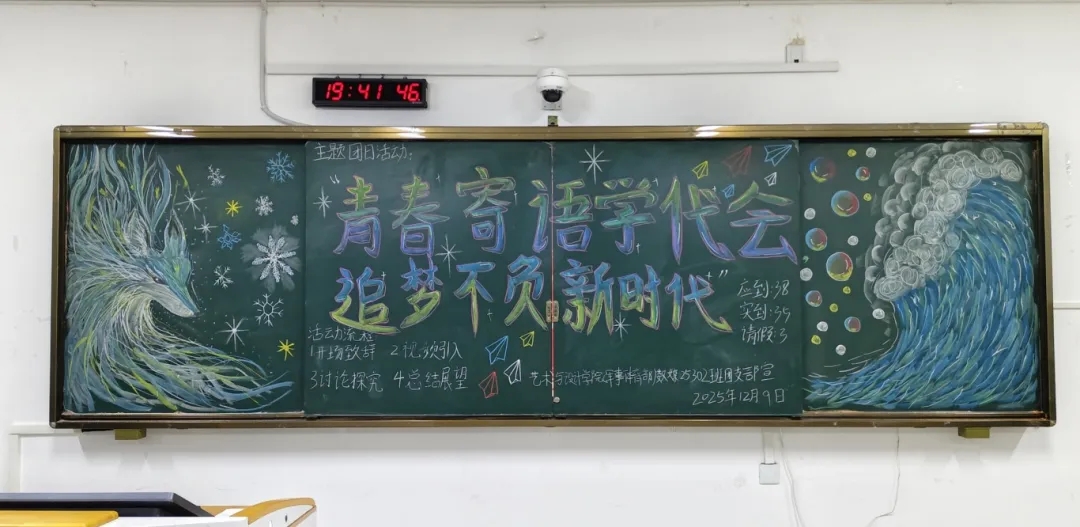 19:41 46
主题团日活动:
"青春寄语学代会
追梦不负新时代"
应到:38
实到:35
请假:3
活动流程
1开场致辞 2视频引入
3讨论探究 4总结展望
艺术与设计学院 25302班团支部宣
2025年12月9日